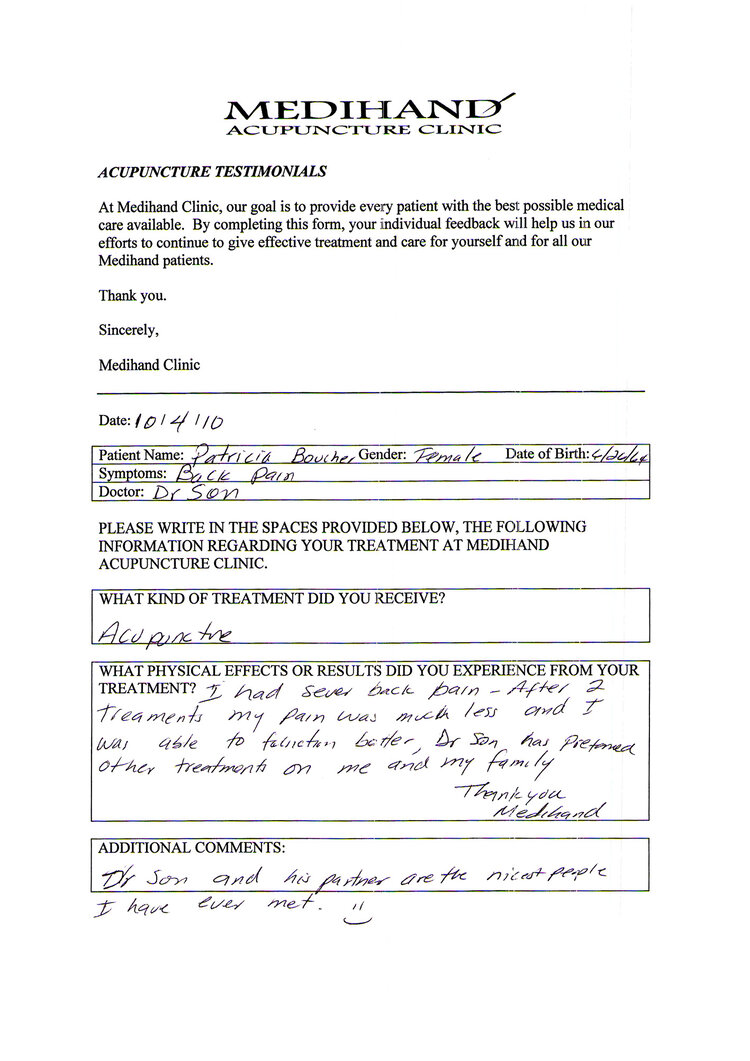 MEDIHAND
ACUPUNCTURE CLINIC
ACUPUNCTURE TESTIMONIALS
At Medihand Clinic, our goal is to provide every patient with the best possible medical
care available. By completing this form, your individual feedback will help us in our
efforts to continue to give effective treatment and care for yourself and for all our
Medihand patients.
Thank you.
Sincerely,
Medihand Clinic
Date: 10/4/10
Patient Name: Patricia Boucher Gender: Female Date of Birth:
Symptoms: Back Pain
Doctor: Dr Son
PLEASE WRITE IN THE SPACES PROVIDED BELOW, THE FOLLOWING
INFORMATION REGARDING YOUR TREATMENT AT MEDIHAND
ACUPUNCTURE CLINIC.
WHAT KIND OF TREATMENT DID YOU RECEIVE?
Acupunctre
WHAT PHYSICAL EFFECTS OR RESULTS DID YOU EXPERIENCE FROM YOUR
TREATMENT? I had sever back pain - After 2
Treaments my pain was much less and I
was able to function better, Dr Son has
other treatments on me and my family
Thank you
Medihand
ADDITIONAL COMMENTS:
Dr Son and his partner are the nicest people
I have ever met.